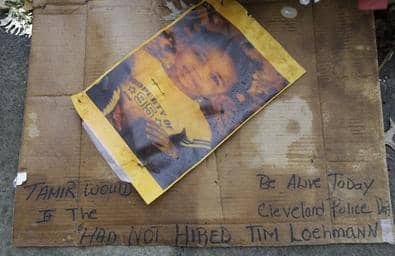 PROPERTY OF
TAMIR WOULD Be ALIVE TODAY
IF The Cleveland Police
HAD NOT HIRED TIM LOEHMANN